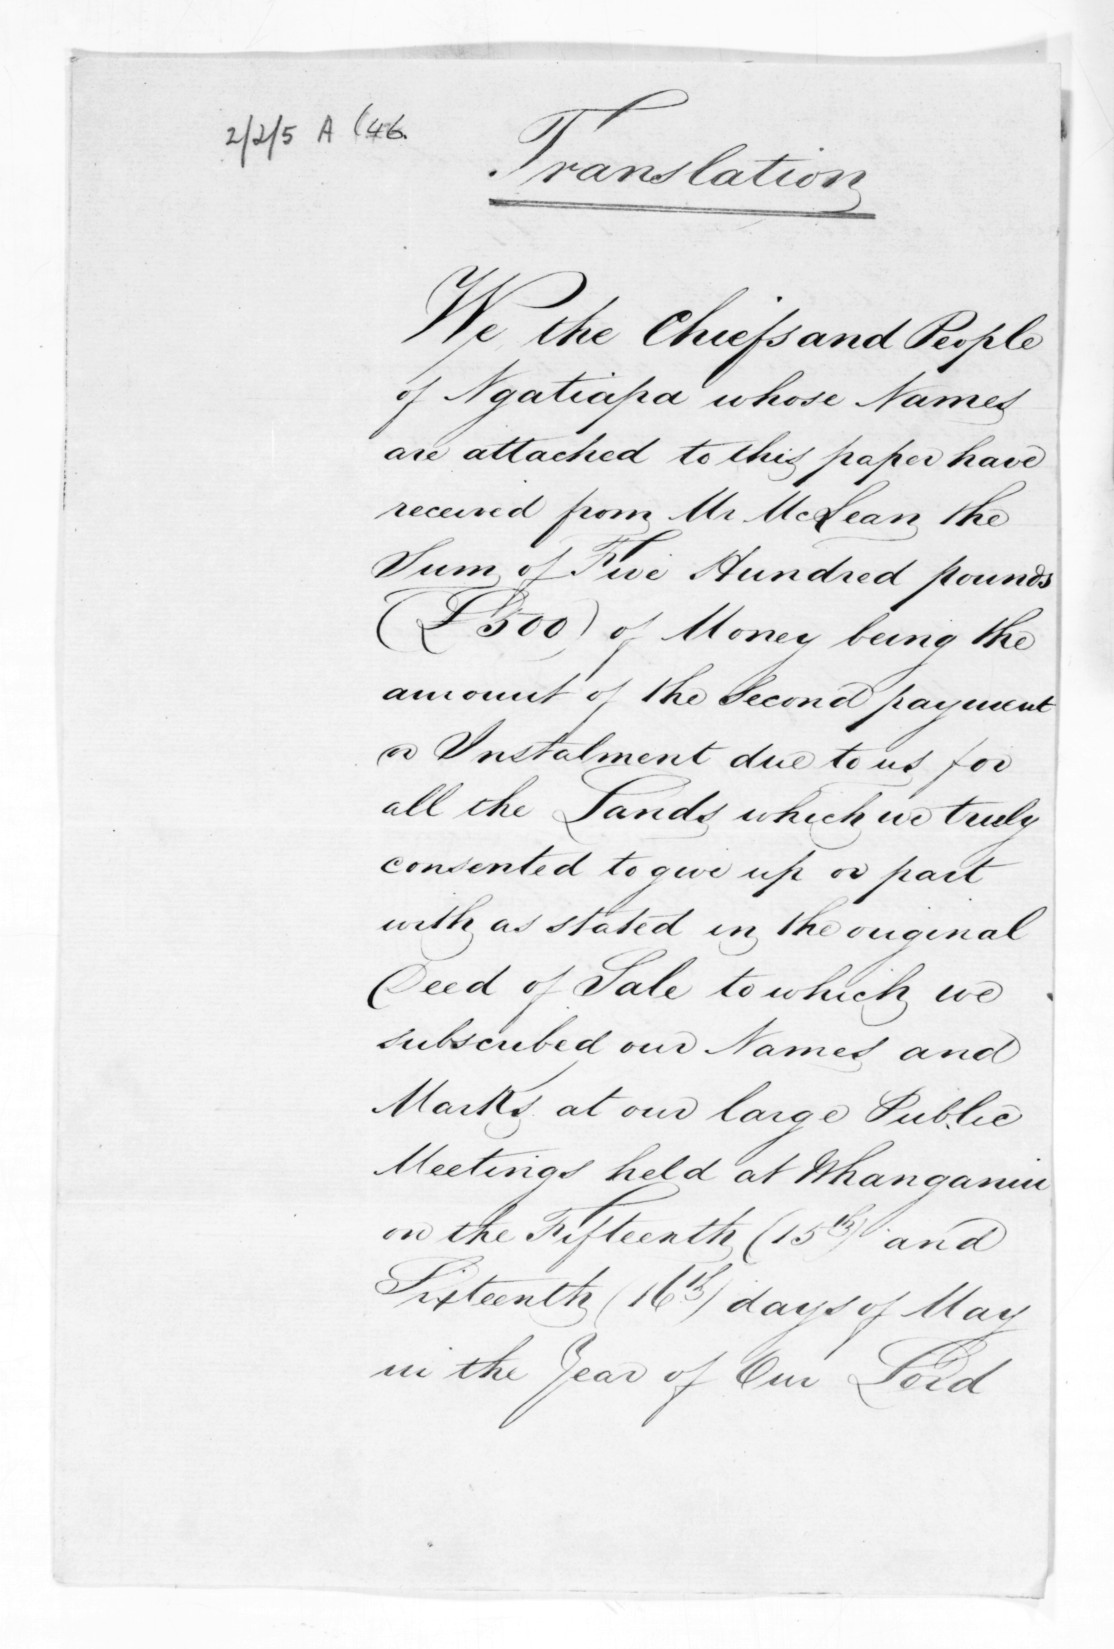 2/2/5 A (46.
Translation
We the Chiefs and People
of Ngatiapa whose Names
are attached to this paper have
received from Mr McLean the
Sum of Five Hundred pounds
(£500) of Money being the
amount of the Second payment
or Instalment due to us for
all the Lands which we truly
consented to give up or part
with as stated in the original
Deed of Sale to which we
subscribed our Names and
Marks at our large Public
Meetings held at Whanganui
on the Fifteenth (15th) and
Sixteenth (16th) days of May
in the Year of Our Lord